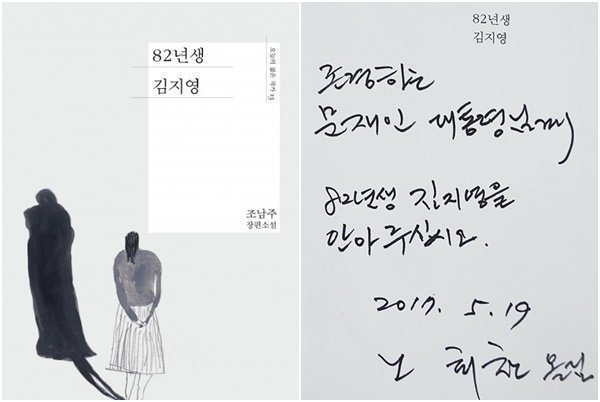 82년생
김지영
오늘의 젊은 작가 13
조남주
장편소설
82년생
김지영
존경하는
문재인 대통령님께
82년생 김지영을
안아 주십시오.
2017. 5. 19
노 회찬 올림